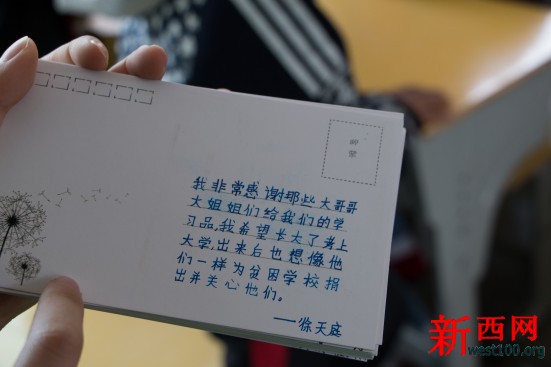 邮票
我非常感谢那些大哥哥
大姐姐们给我们的学
习品,我希望长大了考上
大学,出来后也想像他
们一样为贫困学校捐
出并关心他们。
——徐天庭
新西网
west100.org